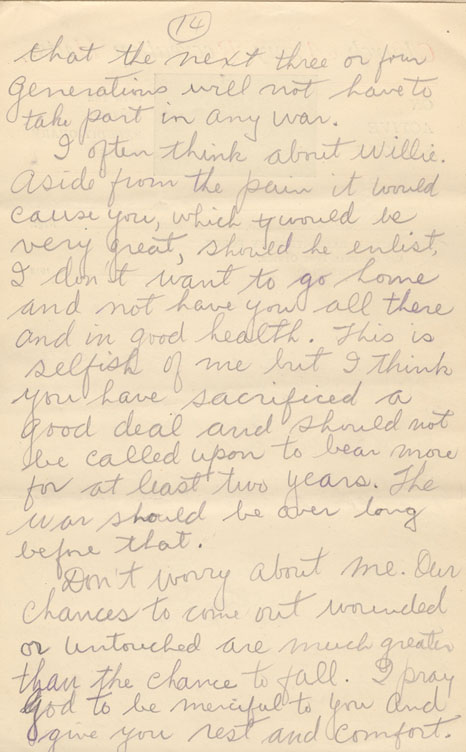 14
that the next three or four
generations will not have to
take part in any war.
I often think about Willie.
Aside from the pain it would
cause you, which would be
very great, should he enlist,
I don't want to go home
and not have you all there
and in good health. This is
selfish of me but I think
you have sacrificed a
good deal and should not
be called upon to bear more
for at least two years. The
war should be over long
before that.
Don't worry about me. Our
chances to come out wounded
or untouched are much greater
than the chance to fall. I pray
God to be merciful to you and
give you rest and comfort.